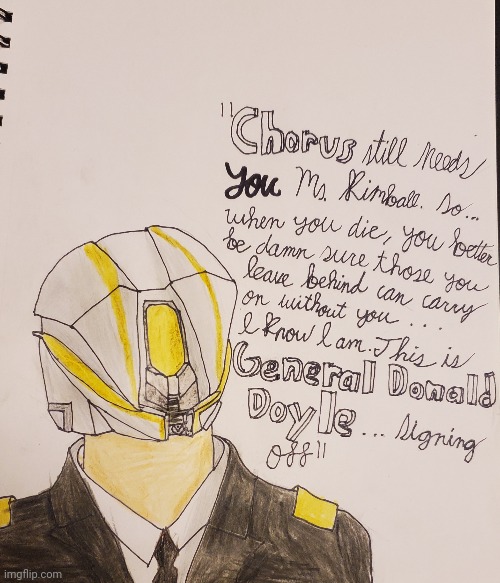 "Chorus still needs
You Ms. Kimball. So...
when you die, you better
be damn sure those you
leave behind can carry
on without you ...
I know I am. This is
General Donald
Doyle ... signing
off"
imgflip.com